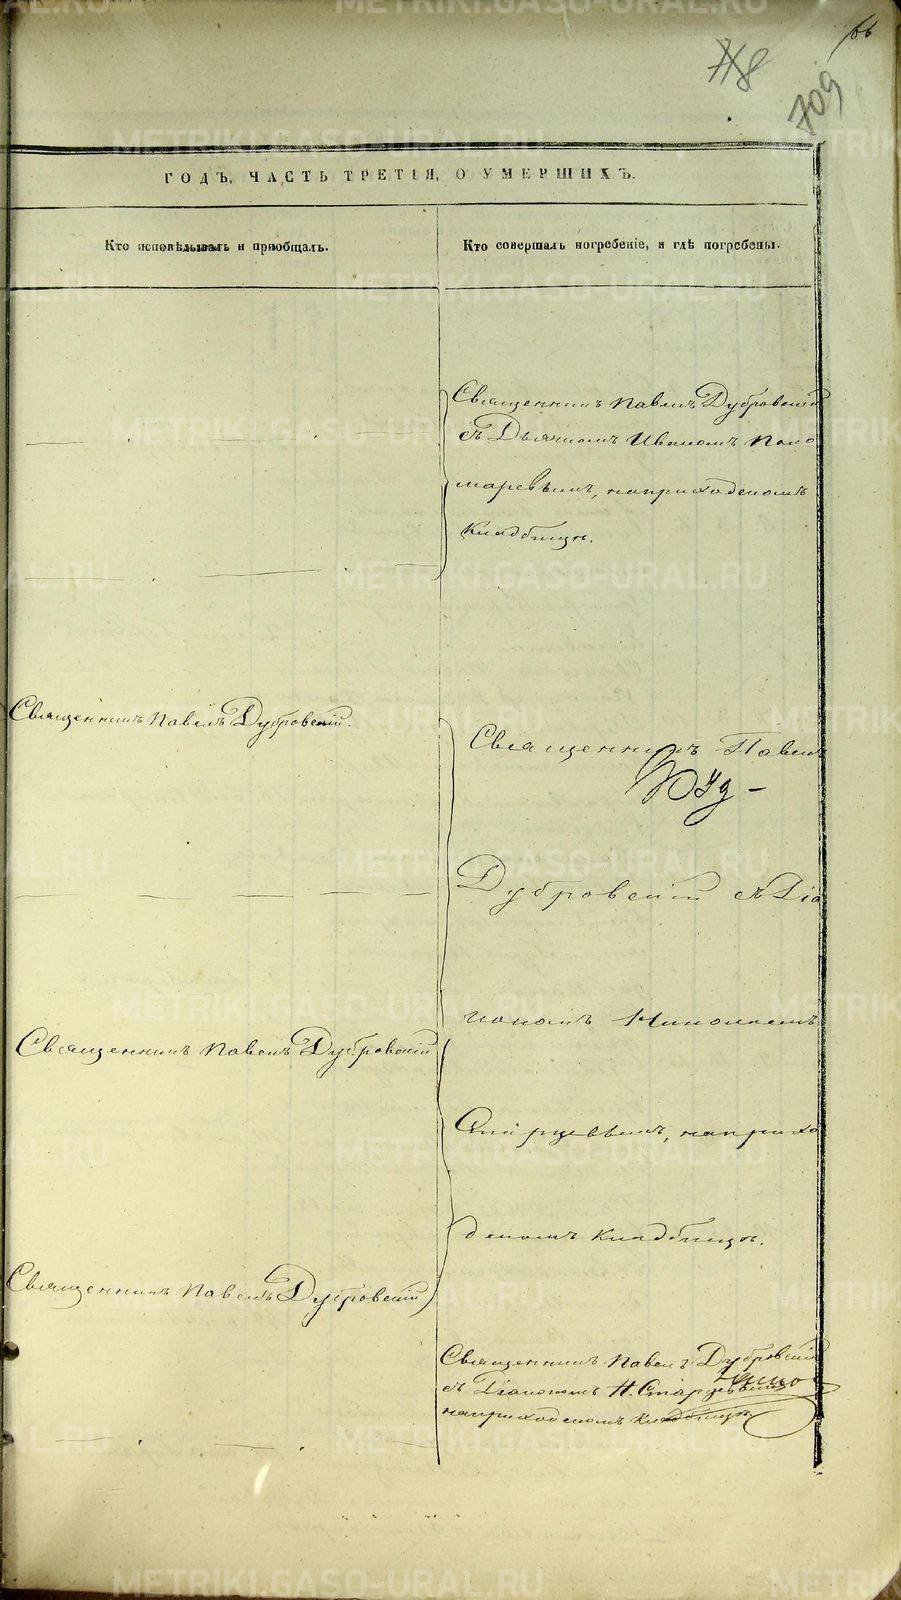 66
718
709
ГОДЪ, ЧАСТЬ ТРЕТІЯ, О УМЕРШИХЪ.
Кто исповѣдывалъ и пріобщалъ.
Кто совершалъ погребеніе, и гдѣ погребены.
Священникъ Павелъ Дубровскій
съ Дьячкомъ Иваномъ Поно
маревымъ, на приходскомъ
кладбищѣ.
Священникъ Павелъ Дубровскій.
Священникъ Павелъ
Дубровскій съ Діа
кономъ Николаемъ
Священникъ Павелъ Дубровскій
Старцевымъ, на прихо
дскомъ кладбищѣ.
Священникъ Павелъ Дубровскій
Священникъ Павелъ Дубровскій
съ Діакономъ Н. Старцевымъ
на приходскомъ кладбищѣ
METRIKI.GASO-URAL.RU